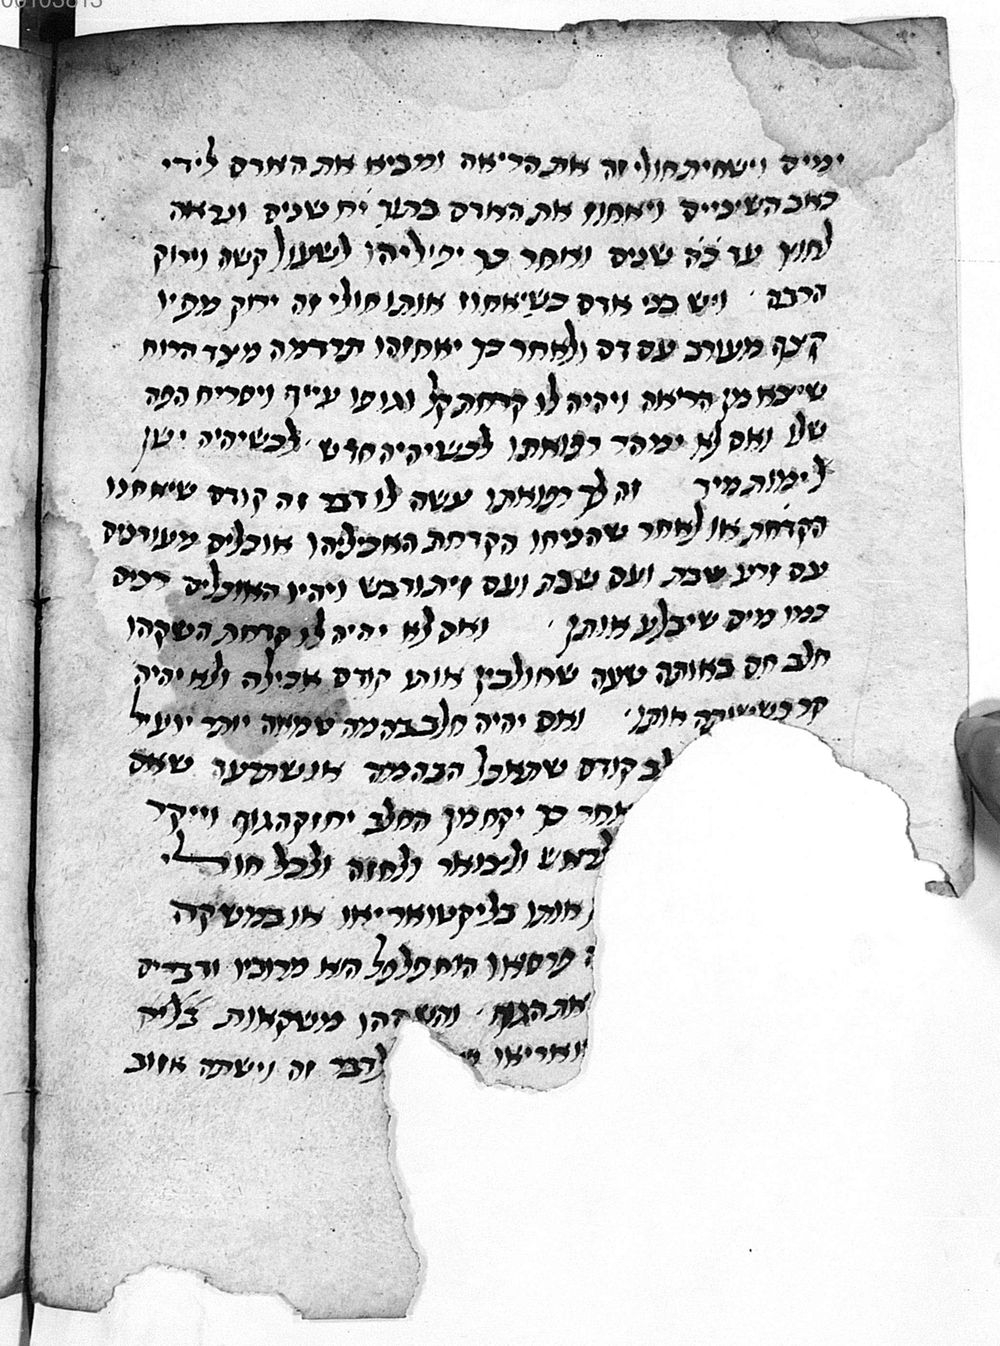 00103813
ימים וישחית חולי זה את הריאה ומביא את האדם לידי
כאב השיניים ויאחוז את האדם בתוך יח שנים ונראה
לחוץ עד כה שנים ואחר כך יביאיהו לשעול קשה וירוק
הרבה ויש בני אדם כשיאחוז אותו חולי זה ירוק מפיו
קצף מעורב עם דם ולאחר כך יאחזהו תרדמה מצד הרוח
שיצא מן הריאה ויהיה לו קדחת קל וגופו עייף ויסריח הפה
שלו ואם לא ימהר רפואתו לכשיהיה חדש לכשיהיה ישן
לימות מיד זה לך רפואתו עשה לו דבר זה קודם שיאחזנו
הקדחת או לאחר שהניחו הקדחת האכיליהו אוכלים מעורבים
עם זרע שבת ועם שבת ועם זית ודבש ויהיו האוכלים רכים
כמו מים שיבלע אותן ואם לא יהיה לו קדחת השקהו
חלב חם באותה שעה שחולבין אותו קודם אכילה ולא יהיה
קר כשישתה אותו ואם יהיה חלב בהמה טמאה יותר יועיל
לב קודם שתאכל הבהמה שאם
אחר כך יקח מן החלב יחזק הגוף וייקר
לראש ולצואר ולחזה ולכל חולי
אותו בליקטואריאו או במשקה
פרסאון הוא פלפל הוא מרוביו ודברים
את הגוף והשקהו משקאות
ואריאו לדבר זה וישתה אזוב